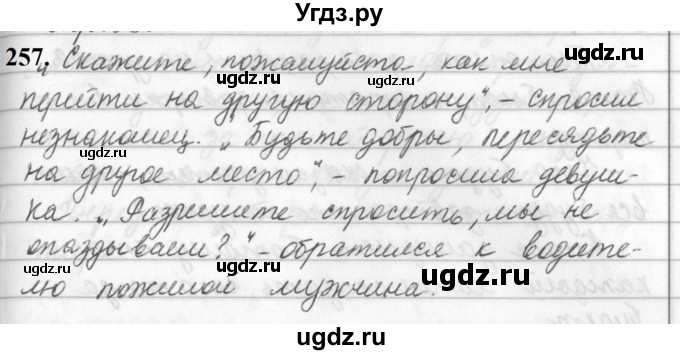 Угдз.ру
257. „Скажите, пожалуйста, как мне
перейти на другую сторону“, – спросил
незнакомец. „Будьте добры, пересядьте
на другое место“, – попросила девуш-
ка. „Разрешите спросить, мы не
опаздываем?“ – обратился к водите-
лю пожилой мужчина.
ugdz.ru
ugdz.ru
ugdz.ru
ugdz.ru
ugdz.ru
ugdz.ru
ugdz.ru
ugdz.ru
ugdz.ru
ugdz.ru
ugdz.ru